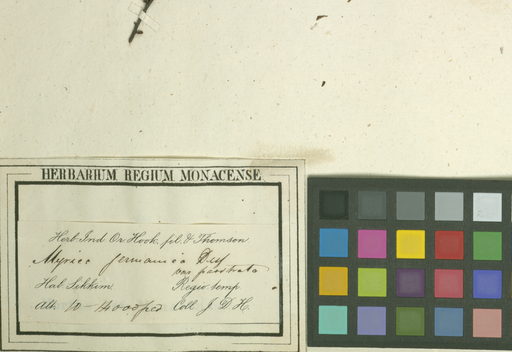 HERBARIUM REGIUM MONACENSE
Herb. Ind. Or. Hook. fil. & Thomson
Myrica germanica Desf
var prostrata
Hab. Sikkim Regio temp.
Alt. 10-14000 ped Coll. J. D. H.